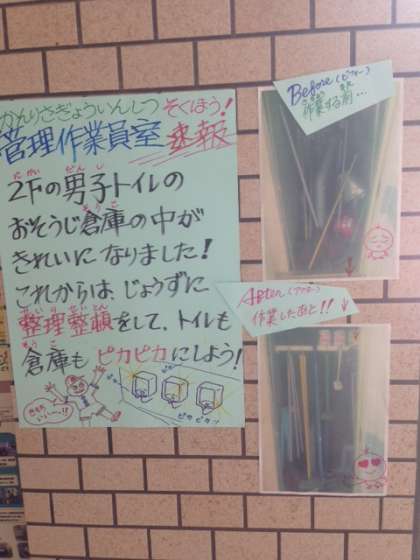 かんりさぎょういんしつ そくほう!
管理作業員室 速報
2Fの男子トイレの
おそうじ倉庫の中が
きれいになりました!
これからは、じょうずに
整理整頓をして、トイレも
倉庫もピカピカにしよう!
きもち
いい〜!!
ピカピカ
Before(ビフォー)
作業する前…
After(アフター)
作業したあと!!